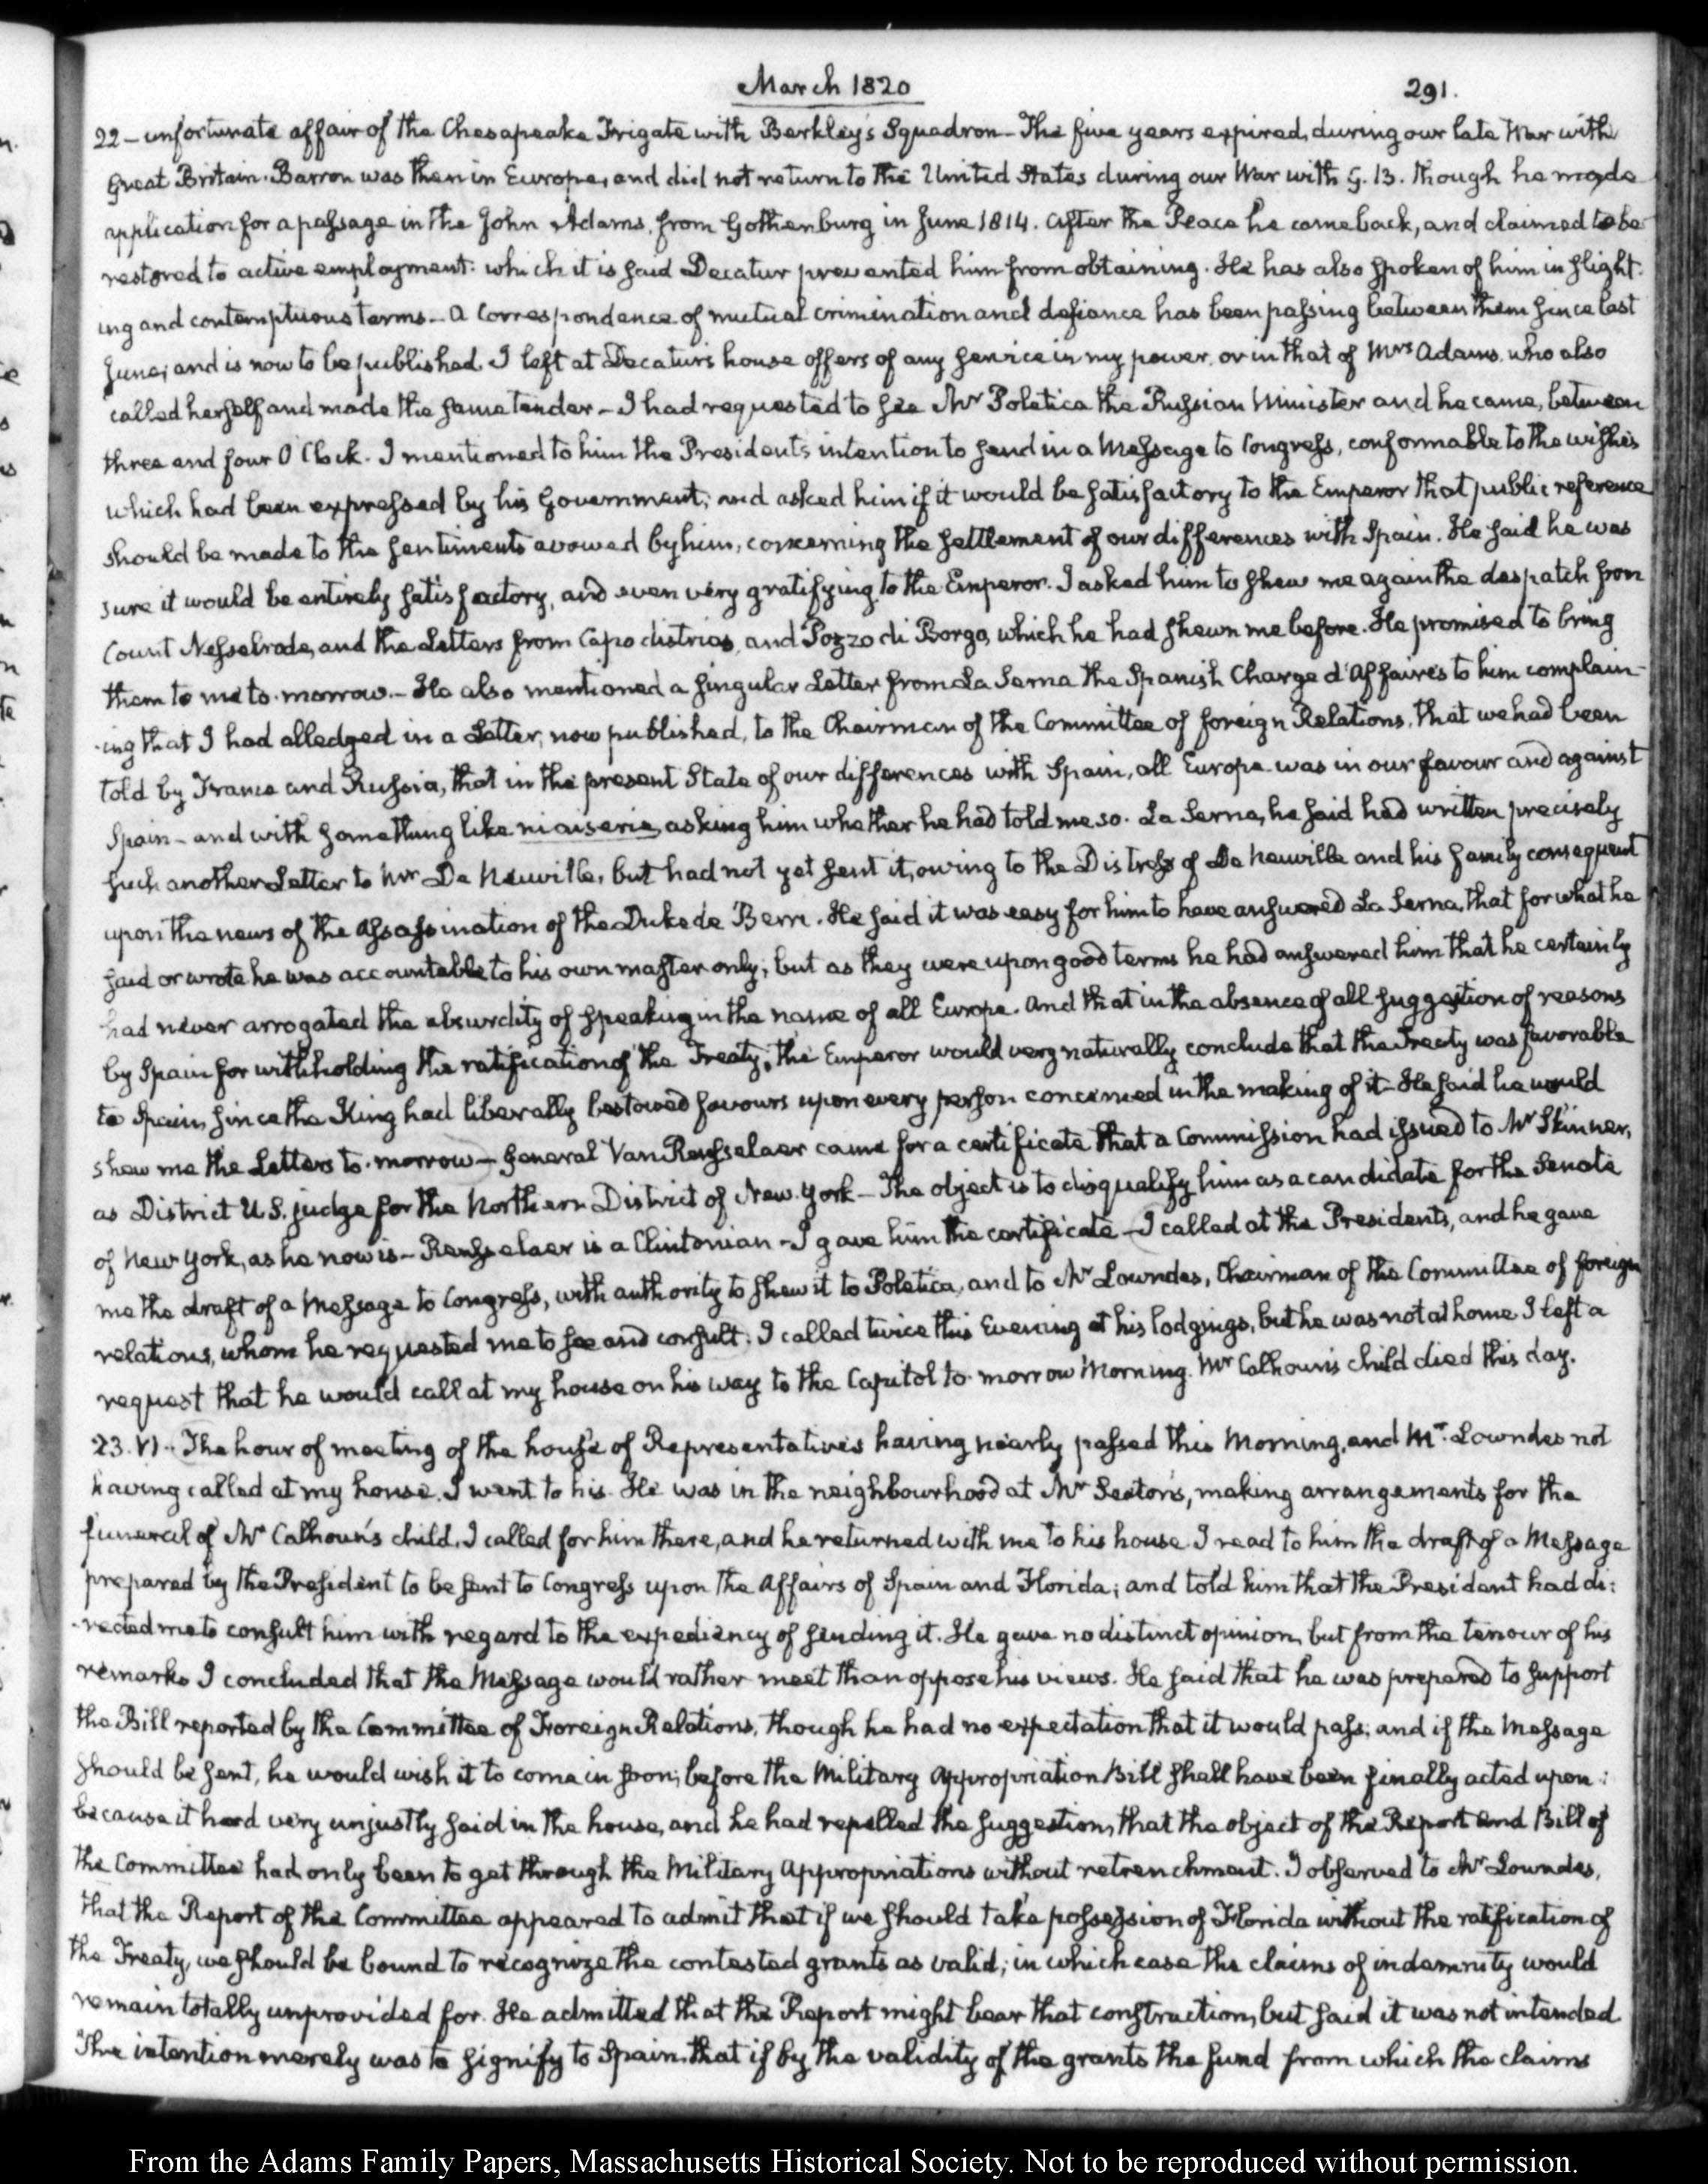 March 1820
291.
22 – unfortunate affair of the Chesapeake Frigate with Berkley's Squadron – The five years expired, during our late War with
Great Britain. Barron was then in Europe, and did not return to the United States during our War with G. B. though he made
application for a passage in the John Adams, from Gothenburg in June 1814. After the Peace he came back, and claimed to be
restored to active employment: which it is said Decatur prevented him from obtaining. He has also spoken of him in slight:
ing and contemptuous terms – A correspondence of mutual crimination and defiance has been passing between them since last
June; and is now to be published. I left at Decatur's house offers of any service in my power, or in that of Mrs Adams, who also
called herself and made the same tender – I had requested to see Mr Poletica the Russian Minister and he came, between
three and four O'Clock. I mentioned to him the President's intention to send in a Message to Congress, conformable to the wishes
which had been expressed by his Government; and asked him if it would be satisfactory to the Emperor that public reference
should be made to the sentiments avowed by him, concerning the settlement of our differences with Spain. He said he was
sure it would be entirely satisfactory, and even very gratifying to the Emperor. I asked him to shew me again the despatch from
Count Nesselrode, and the Letters from Capo distrias, and Pozzo di Borgo, which he had shewn me before. He promised to bring
them to me to-morrow. – He also mentioned a singular Letter from La Serna the Spanish Chargé d'Affaires to him complain-
-ing that I had alledged in a Letter, now published, to the Chairman of the Committee of foreign Relations, that we had been
told by France and Russia, that in the present State of our differences with Spain, all Europe was in our favour and against
Spain – and with something like niaiserie, asking him whether he had told me so. La Serna, he said had written precisely
such another Letter to Mr De Neuville, but had not yet sent it, owing to the Distress of De Neuville and his family consequent
upon the news of the Assassination of the Duke de Berri. He said it was easy for him to have answered La Serna, that for what he
said or wrote he was accountable to his own master only; but as they were upon good terms he had answered him that he certainly
had never arrogated the absurdity of speaking in the name of all Europe. And that in the absence of all suggestion of reasons
by Spain for withholding the ratification of the Treaty, the Emperor would very naturally conclude that the Treaty was favorable
to Spain, since the King had liberally bestowed favours upon every person concerned in the making of it – He said he would
shew me the Letters to-morrow – General Van Rensselaer came for a certificate that a Commission had issued to Mr Skinner,
as District U.S. judge for the Northern District of New-York – The object is to disqualify him as a candidate for the Senate
of New York, as he now is – Rensselaer is a Clintonian – I gave him the certificate – I called at the President's, and he gave
me the draft of a Message to Congress, with authority to shew it to Poletica, and to Mr Lowndes, Chairman of the Committee of foreign
relations, whom he requested me to see and consult. I called twice this Evening at his lodgings, but he was not at home. I left a
request that he would call at my house on his way to the Capitol to-morrow Morning. Mr Calhoun's child died this day.
23. VI. The hour of meeting of the house of Representatives having nearly passed this Morning, and Mr. Lowndes not
having called at my house, I went to his. He was in the neighbourhood at Mr Seaton's, making arrangements for the
funeral of Mr Calhoun's child. I called for him there, and he returned with me to his house. I read to him the draft of a Message
prepared by the President to be sent to Congress upon the Affairs of Spain and Florida; and told him that the President had di:
-rected me to consult him with regard to the expediency of sending it. He gave no distinct opinion, but from the tenour of his
remarks I concluded that the Message would rather meet than oppose his views. He said that he was prepared to support
the Bill reported by the Committee of Foreign Relations, though he had no expectation that it would pass; and if the Message
should be sent, he would wish it to come in soon; before the Military Appropriation Bill shall have been finally acted upon:
because it had very unjustly said in the house, and he had repelled the suggestion, that the object of the Report and Bill of
the Committee had only been to get through the Military Appropriations without retrenchment. I observed to Mr Lowndes,
that the Report of the Committee appeared to admit that if we should take possession of Florida without the ratification of
the Treaty, we should be bound to recognize the contested grants as valid; in which case the claims of indemnity would
remain totally unprovided for. He admitted that the Report might bear that construction, but said it was not intended
The intention merely was to signify to Spain, that if by the validity of the grants the fund from which the claims
From the Adams Family Papers, Massachusetts Historical Society. Not to be reproduced without permission.